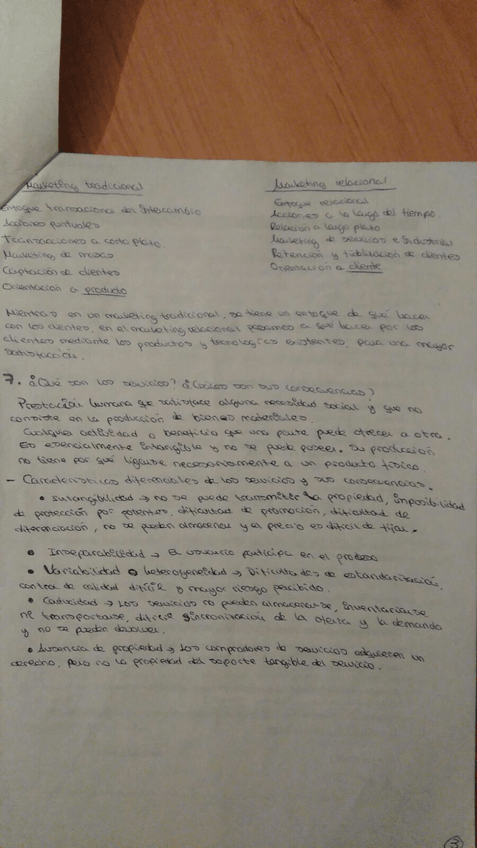 Marketing tradicional
Enfoque transacional del Intercambio
Acciones puntuales
Transacciones a corto plazo.
Marketing de masas
Captación de clientes
Orientación a producto
Marketing relacional
Enfoque relacional
Acciones a lo largo del tiempo.
Relación a largo plazo
Marketing de servicios e Industrial
Retención y fidelización de clientes
Orientación a cliente
Mientras en un marketing tradicional, se tiene un enfoque de qué hacer
con los clientes, en el marketing relacional pasamos a qué hacer por los
clientes mediante los productos y tecnologías existentes, para una mayor
satisfacción.
7. ¿Qué son los servicios? ¿Cuáles son sus consecuencias?
Prestación humana que satisface alguna necesidad social y que no
consiste en la producción de bienes materiales.
Cualquier actividad o beneficio que una parte puede ofrecer a otra.
Es esencialmente intangible y no se puede poseer. Su producción
no tiene por qué ligarse necesariamente a un producto físico.
- Características diferenciales de los servicios y sus consecuencias.
• Intangibilidad → no se puede transmitir la propiedad, imposibilidad
de protección por patentes, dificultad de promoción, dificultad de
diferenciación, no se pueden almacenar y el precio es difícil de fijar.
• Inseparabilidad → El usuario participa en el proceso
• Variabilidad o heterogeneidad → Dificultades de estandarización,
control de calidad difícil y mayor riesgo percibido.
• Caducidad → Los servicios no pueden almacenarse, inventariarse
ni transportarse, difícil sincronización de la oferta y la demanda
y no se pueden devolver.
• Ausencia de propiedad → Los compradores de servicios adquieren un
derecho, pero no la propiedad del soporte tangible del servicio.
3